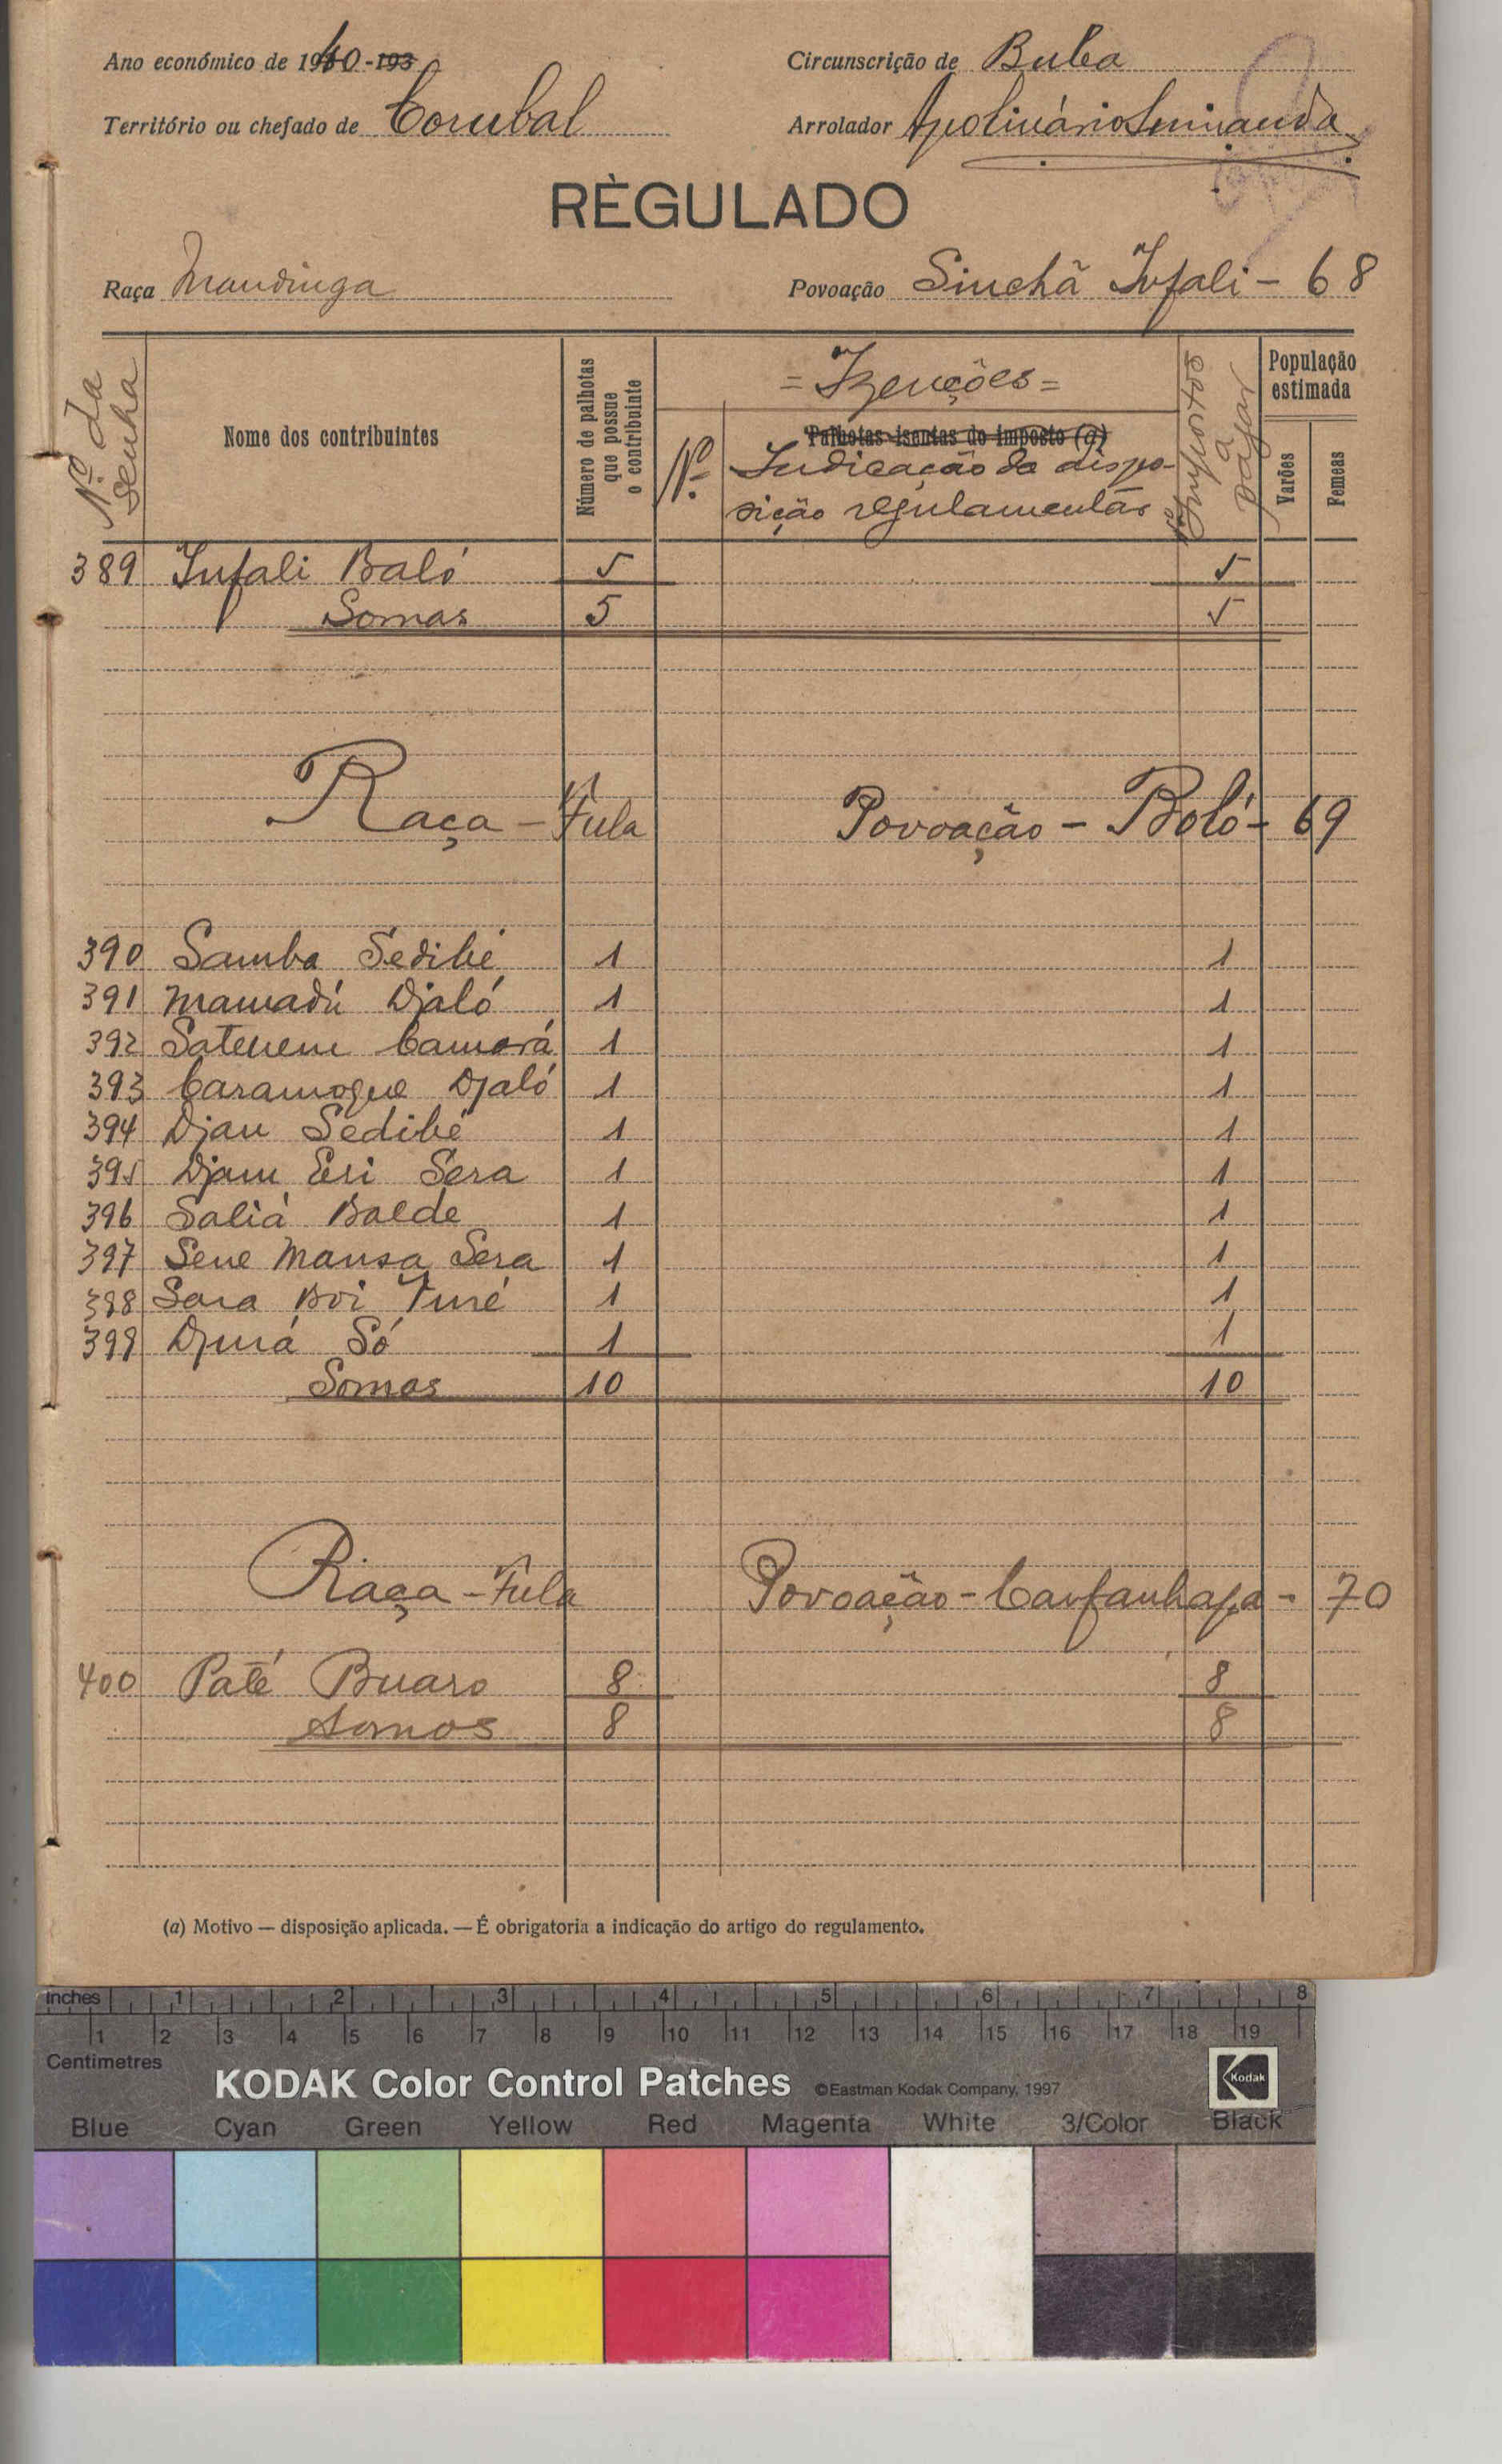 Ano económico de 1940-193
Circunscrição de Buba
Território ou chefado de Corubal
Arrolador Apolinário Miranda
RÈGULADO
Raça Mandinga
Povoação Sinchã Infali - 68
Nº da senha
Nome dos contribuintes
Número de palhotas que possue o contribuinte
= Izenções =
Palhotas isentas do imposto (a)
Nº
Indicação da dispo-
sição regulamentar
Impostos a pagar
População estimada
Varões
Femeas
389 Infali Baló 5 5
Somas 5 5
Raça - Fula Povoação - Boló - 69
390 Samba Sedibé 1 1
391 Mamadú Djaló 1 1
392 Satenem Camará 1 1
393 Caramogue Djaló 1 1
394 Djan Sedibé 1 1
395 Djam Eri Sera 1 1
396 Saliá Balde 1 1
397 Sene Mansa Sera 1 1
398 Sara Boi Turé 1 1
399 Djuá Só 1 1
Somas 10 10
Raça - Fula Povoação - - 70
400 Paté Buaro 8 8
Somas 8 8
(a) Motivo — disposição aplicada. — É obrigatoria a indicação do artigo do regulamento.
Inches 1 2 3 4 5 6 7 8
1 2 3 4 5 6 7 8 9 10 11 12 13 14 15 16 17 18 19
Centimetres
KODAK Color Control Patches ©Eastman Kodak Company, 1997 Kodak
Blue Cyan Green Yellow Red Magenta White 3/Color Black